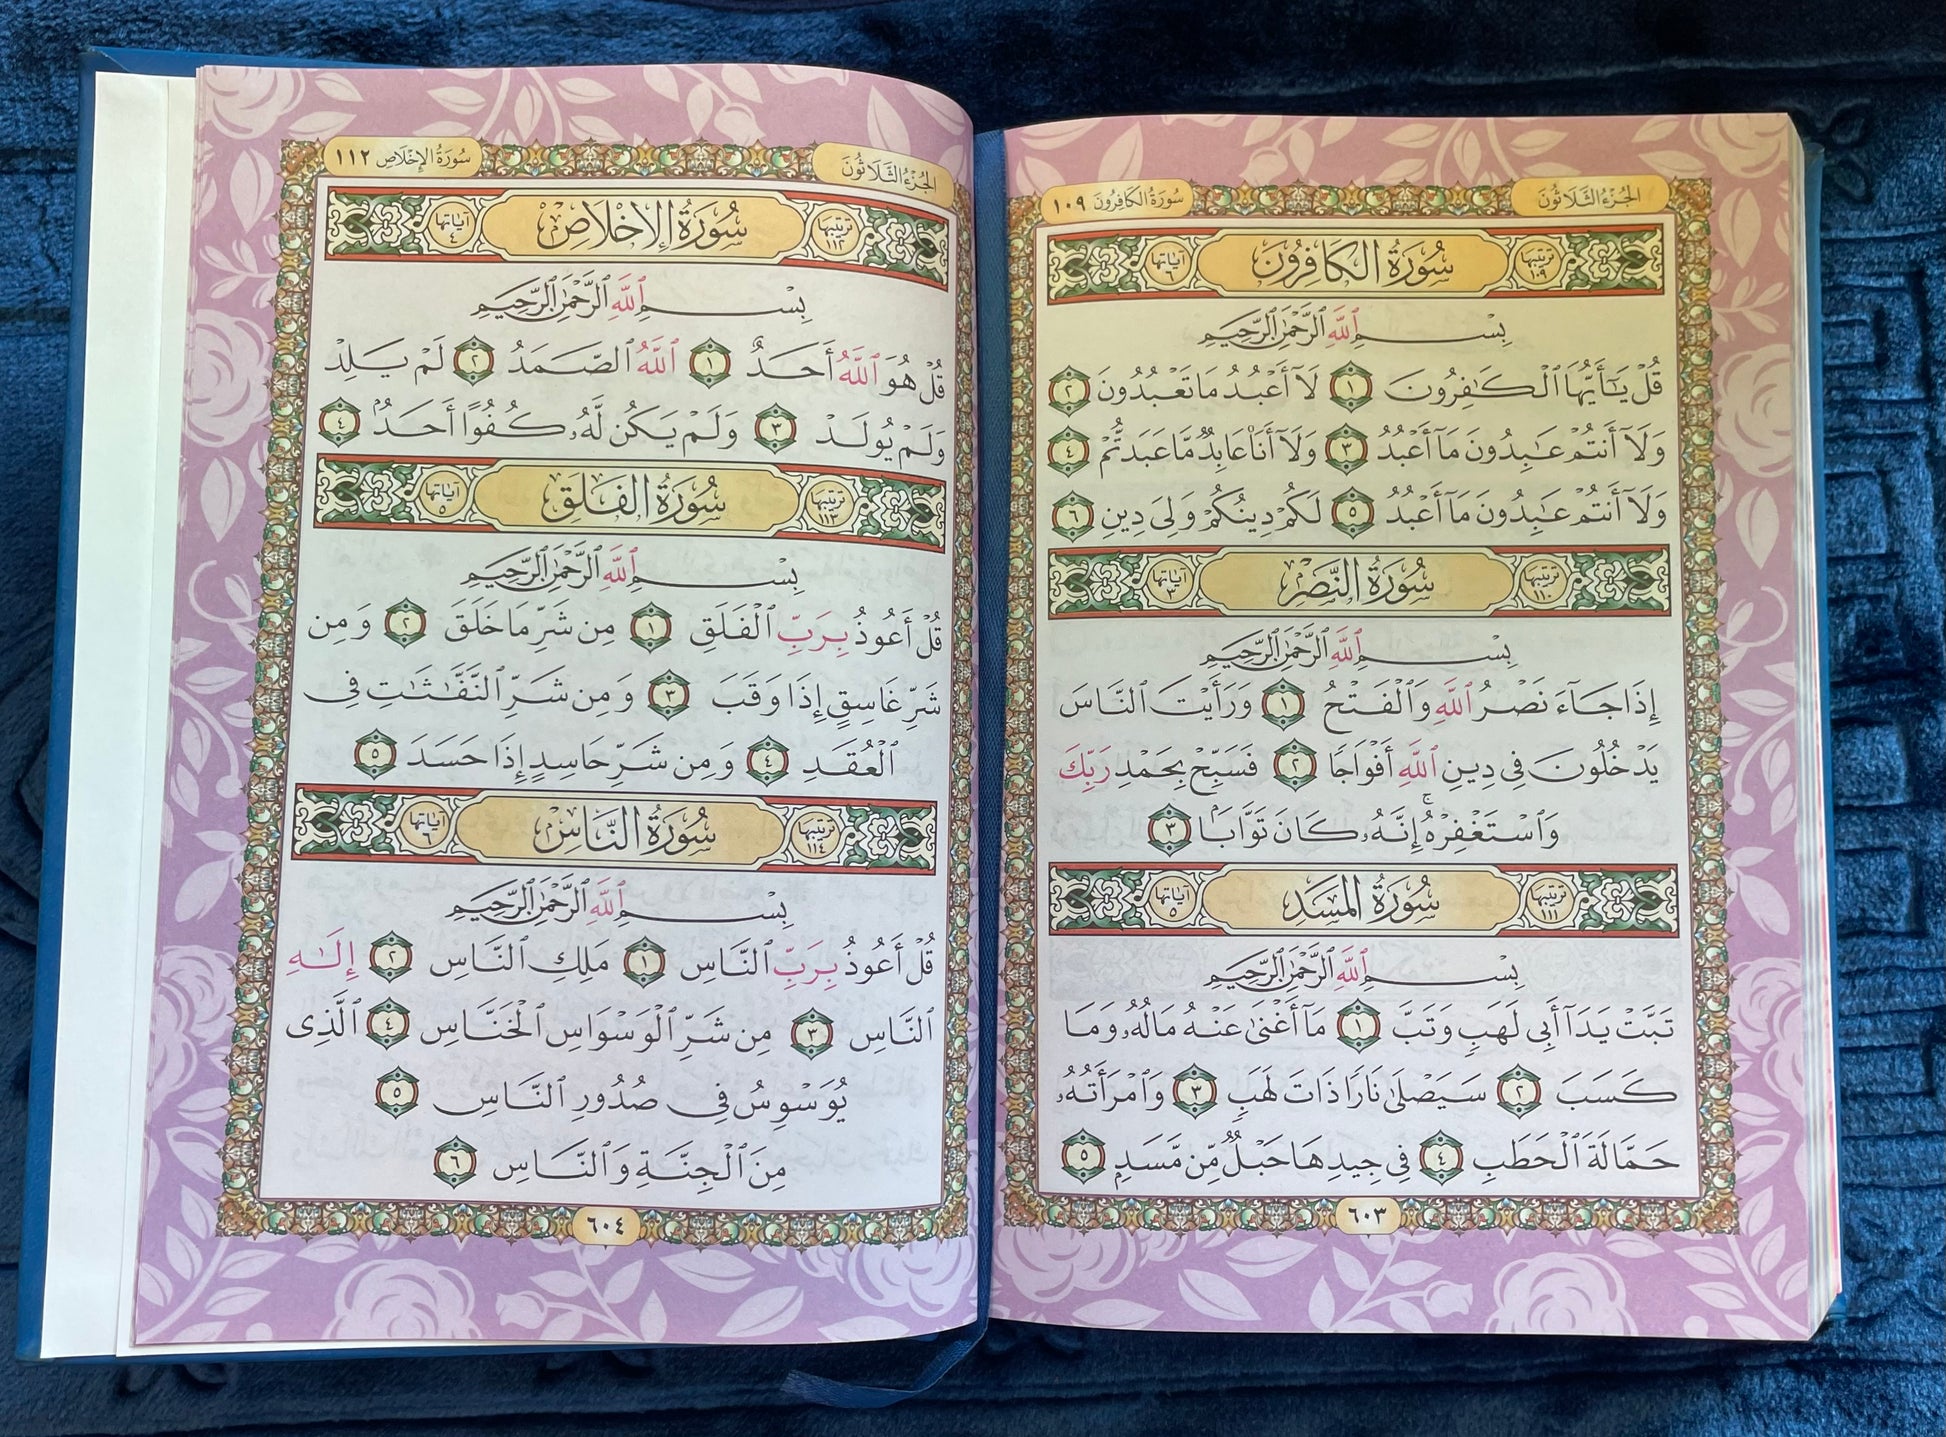 الجُزْءُ الثَّلَاثُونَ
سُورَةُ الكَافِرُونَ ١٠٩
ترتيبها ١٠٩ سُورَةُ الكَافِرُونَ آياتها ٦
بِسْمِ ٱللَّهِ ٱلرَّحْمَٰنِ ٱلرَّحِيمِ
قُلْ يَـٰٓأَيُّهَا ٱلْكَـٰفِرُونَ ١ لَآ أَعْبُدُ مَا تَعْبُدُونَ ٢
وَلَآ أَنتُمْ عَـٰبِدُونَ مَآ أَعْبُدُ ٣ وَلَآ أَنَا۠ عَابِدٌ مَّا عَبَدتُّمْ ٤
وَلَآ أَنتُمْ عَـٰبِدُونَ مَآ أَعْبُدُ ٥ لَكُمْ دِينُكُمْ وَلِىَ دِينِ ٦
ترتيبها ١١٠ سُورَةُ النَّصْرِ آياتها ٣
بِسْمِ ٱللَّهِ ٱلرَّحْمَٰنِ ٱلرَّحِيمِ
إِذَا جَآءَ نَصْرُ ٱللَّهِ وَٱلْفَتْحُ ١ وَرَأَيْتَ ٱلنَّاسَ
يَدْخُلُونَ فِى دِينِ ٱللَّهِ أَفْوَاجًا ٢ فَسَبِّحْ بِحَمْدِ رَبِّكَ
وَٱسْتَغْفِرْهُ ۚ إِنَّهُۥ كَانَ تَوَّابًۢا ٣
ترتيبها ١١١ سُورَةُ المَسَدِ آياتها ٥
بِسْمِ ٱللَّهِ ٱلرَّحْمَٰنِ ٱلرَّحِيمِ
تَبَّتْ يَدَآ أَبِى لَهَبٍ وَتَبَّ ١ مَآ أَغْنَىٰ عَنْهُ مَالُهُۥ وَمَا
كَسَبَ ٢ سَيَصْلَىٰ نَارًا ذَاتَ لَهَبٍ ٣ وَٱمْرَأَتُهُۥ
حَمَّالَةَ ٱلْحَطَبِ ٤ فِى جِيدِهَا حَبْلٌ مِّن مَّسَدٍۭ ٥
٦٠٣
الجُزْءُ الثَّلَاثُونَ
سُورَةُ الإِخْلَاصِ ١١٢
ترتيبها ١١٢ سُورَةُ الإِخْلَاصِ آياتها ٤
بِسْمِ ٱللَّهِ ٱلرَّحْمَٰنِ ٱلرَّحِيمِ
قُلْ هُوَ ٱللَّهُ أَحَدٌ ١ ٱللَّهُ ٱلصَّمَدُ ٢ لَمْ يَلِدْ
وَلَمْ يُولَدْ ٣ وَلَمْ يَكُن لَّهُۥ كُفُوًا أَحَدٌۢ ٤
ترتيبها ١١٣ سُورَةُ الفَلَقِ آياتها ٥
بِسْمِ ٱللَّهِ ٱلرَّحْمَٰنِ ٱلرَّحِيمِ
قُلْ أَعُوذُ بِرَبِّ ٱلْفَلَقِ ١ مِن شَرِّ مَا خَلَقَ ٢ وَمِن
شَرِّ غَاسِقٍ إِذَا وَقَبَ ٣ وَمِن شَرِّ ٱلنَّفَّـٰثَـٰتِ فِى
ٱلْعُقَدِ ٤ وَمِن شَرِّ حَاسِدٍ إِذَا حَسَدَ ٥
ترتيبها ١١٤ سُورَةُ النَّاسِ آياتها ٦
بِسْمِ ٱللَّهِ ٱلرَّحْمَٰنِ ٱلرَّحِيمِ
قُلْ أَعُوذُ بِرَبِّ ٱلنَّاسِ ١ مَلِكِ ٱلنَّاسِ ٢ إِلَـٰهِ
ٱلنَّاسِ ٣ مِن شَرِّ ٱلْوَسْوَاسِ ٱلْخَنَّاسِ ٤ ٱلَّذِى
يُوَسْوِسُ فِى صُدُورِ ٱلنَّاسِ ٥
مِنَ ٱلْجِنَّةِ وَٱلنَّاسِ ٦
٦٠٤